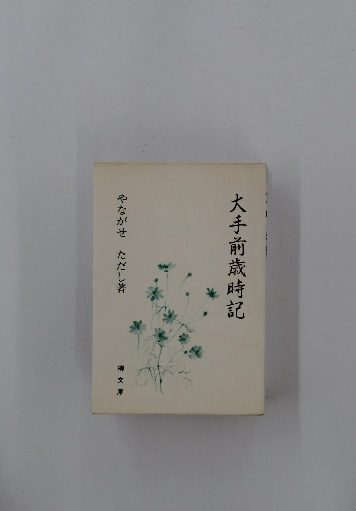 大手前歳時記
やながせ ただし著
柳文庫